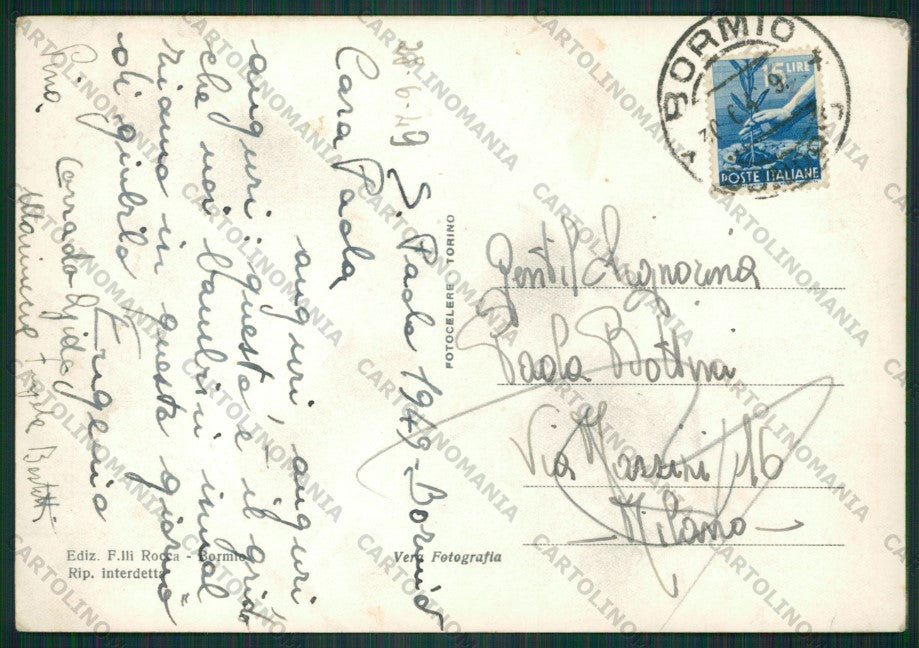 BORMIO
15 LIRE
POSTE ITALIANE
28.6.49
S. Paolo 1949 - Bormio
Cara Paola
auguri, auguri
auguri, questo è il grido
che noi bambini
in questo giorno
di giubilo
Eugenia
Pino
Corrado
Gentil Signorina
Paola Bottini
Via Mazzini 16
Milano
FOTOCELERE TORINO
Ediz. F.lli Rocca - Bormio
Rip. interdetta
Vera Fotografia
CARTOLINOMANIA